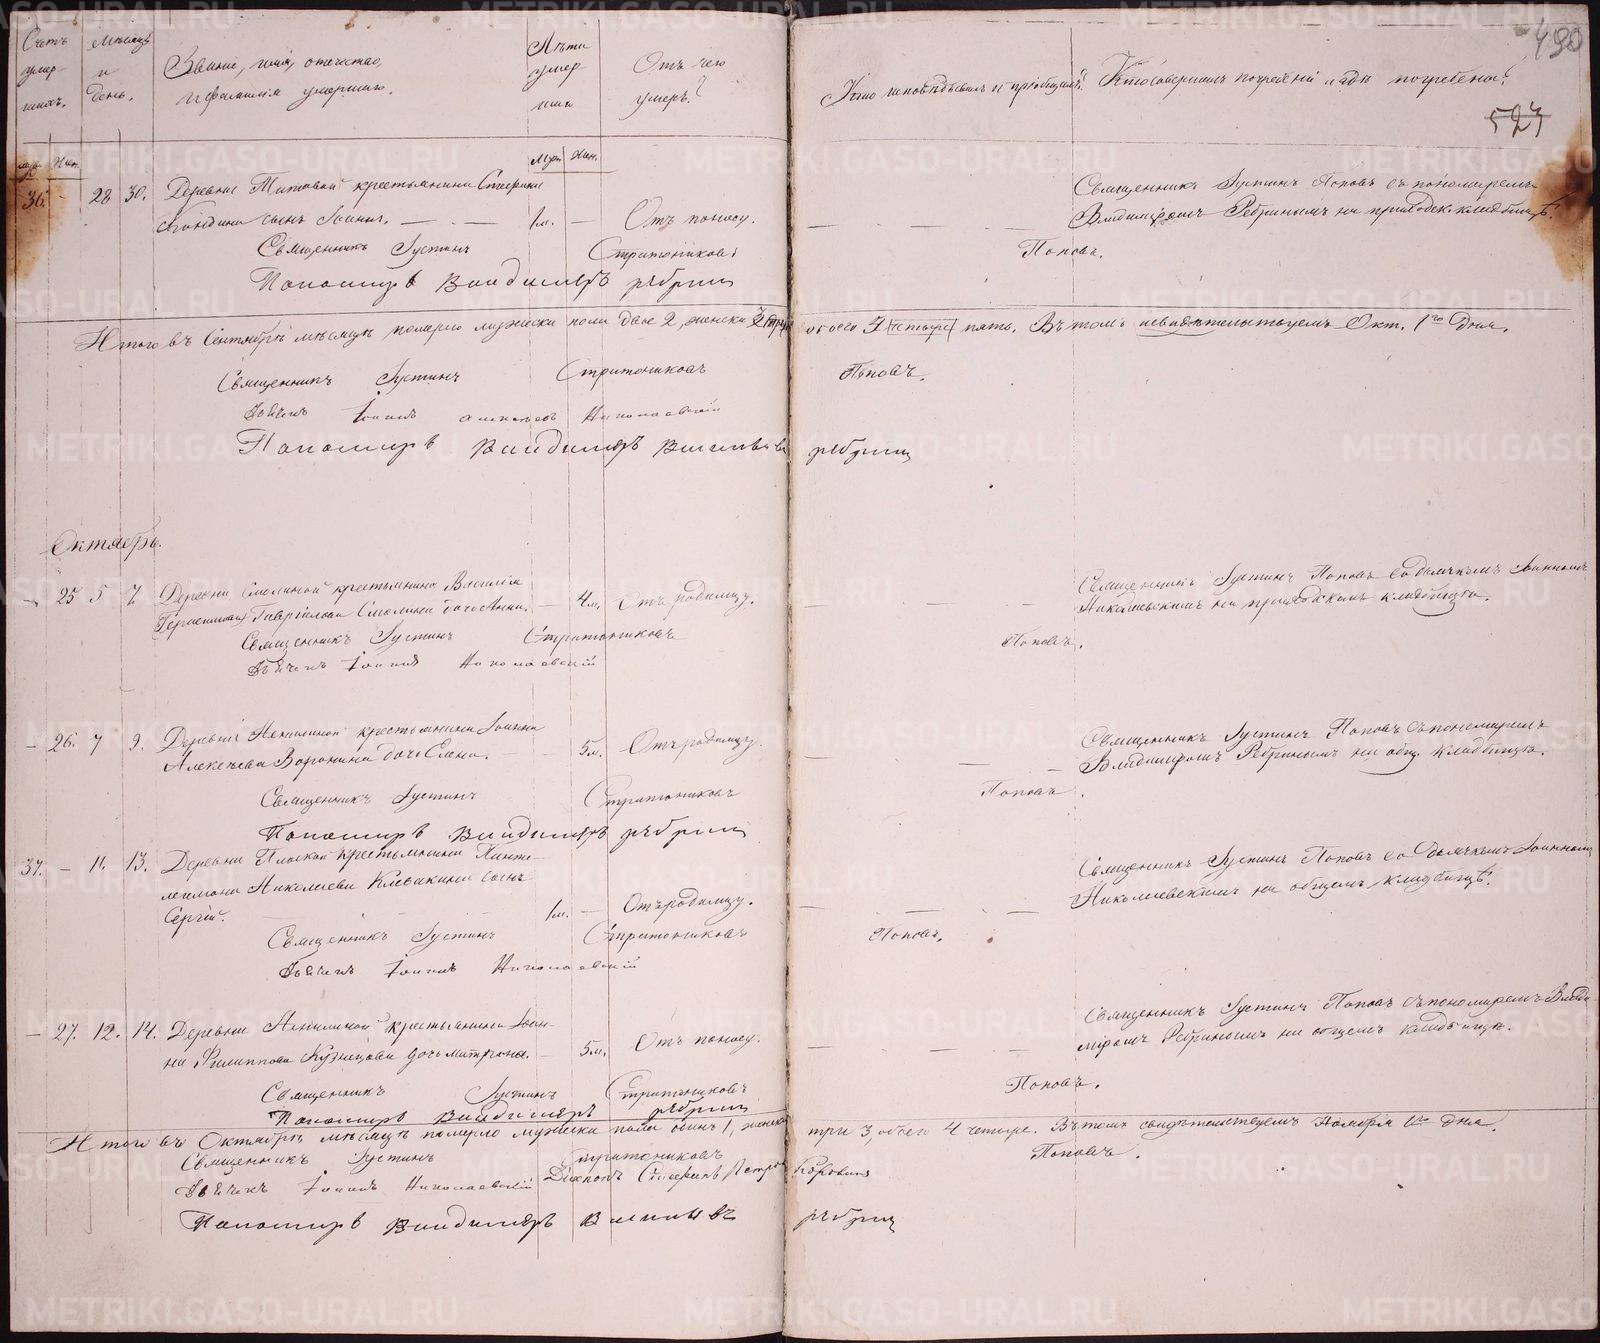 Счетъ умер-шихъ.
Мѣсяцъ и день.
Званіе, имя, отчество,
и фамилія умершаго.
Лѣта умер-шаго
Отъ чего
умеръ?
Кто исповѣдывалъ и пріобщалъ?
Кто совершалъ погребеніе и гдѣ погребены?
490
527
муж. Жен.
Муж. Жен.
36. - 28 30. Деревни Титовой крестьянина Стефана
сынъ Іоаннъ. 1м. Отъ поносу.
Священникъ Іустинъ Поповъ съ пономаремъ
Владиміромъ Ребринымъ на приходск. кладбищѣ.
Священникъ Іустинъ Стратониковъ Поповъ.
Пономарь Владимѣръ рѣбрин
Итого въ Сентябрѣ мѣсяцѣ померло мужеска пола двое 2, женска
обоего пять. Въ томъ свидѣтельствуемъ Окт. 1го дня.
Священникъ Іустинъ Стратониковъ Поповъ.
Дьячекъ Іоаннъ Николаевскій
Пономарь Владимѣръ рѣбрин
Октябрь.
- 25 5 7 Деревни Смолиной крестьянина Василія
Гаврилова Смолина дочь Анна. - 4м. Отъ родимцу.
Священникъ Іустинъ Поповъ со дьячкомъ Іоанномъ
Николаевскимъ на приходскомъ кладбищѣ.
Священникъ Іустинъ Стратониковъ Поповъ.
Дьячекъ Іоаннъ Николаевскій
- 26. 7 9. Деревни крестьянина Іоанна
Алексѣева Воронина дочь Елена. 5м. Отъ родимцу.
Священникъ Іустинъ Поповъ съ пономаремъ
Владиміромъ Ребринымъ на общ. кладбищѣ.
Священникъ Іустинъ Стратониковъ Поповъ.
Пономарь Владимѣръ рѣбрин
37. - 11. 13. Деревни Плоской крестьянина Панте-
леимона Николаева Клевакина сынъ
Сергій. 1м. - Отъ родимцу.
Священникъ Іустинъ Поповъ со Дьячкомъ Іоанномъ
Николаевскимъ на общемъ кладбищѣ.
Священникъ Іустинъ Стратониковъ Поповъ.
Дьячекъ Іоаннъ Николаевскій
- 27. 12. 14. Деревни крестьянина Іоан-
на Филиппова Кузнецова дочь Матрона. - 5м. Отъ поносу.
Священникъ Іустинъ Поповъ съ пономаремъ Влади-
міромъ Ребринымъ на общемъ кладбищѣ.
Священникъ Іустинъ Стратониковъ Поповъ.
Пономарь Владимѣръ рѣбрин
Итого въ Октябрѣ мѣсяцѣ померло мужеска пола одинъ 1, женска три 3, обоего 4 четыре. Въ томъ свидѣтельствуемъ Ноября 1го дня.
Священникъ Іустинъ Стратониковъ Поповъ.
Дьячекъ Іоаннъ Николаевскій Діаконъ Стефанъ Петровъ
Пономарь Владимѣръ рѣбрин
METRIKI.GASO-URAL.RU